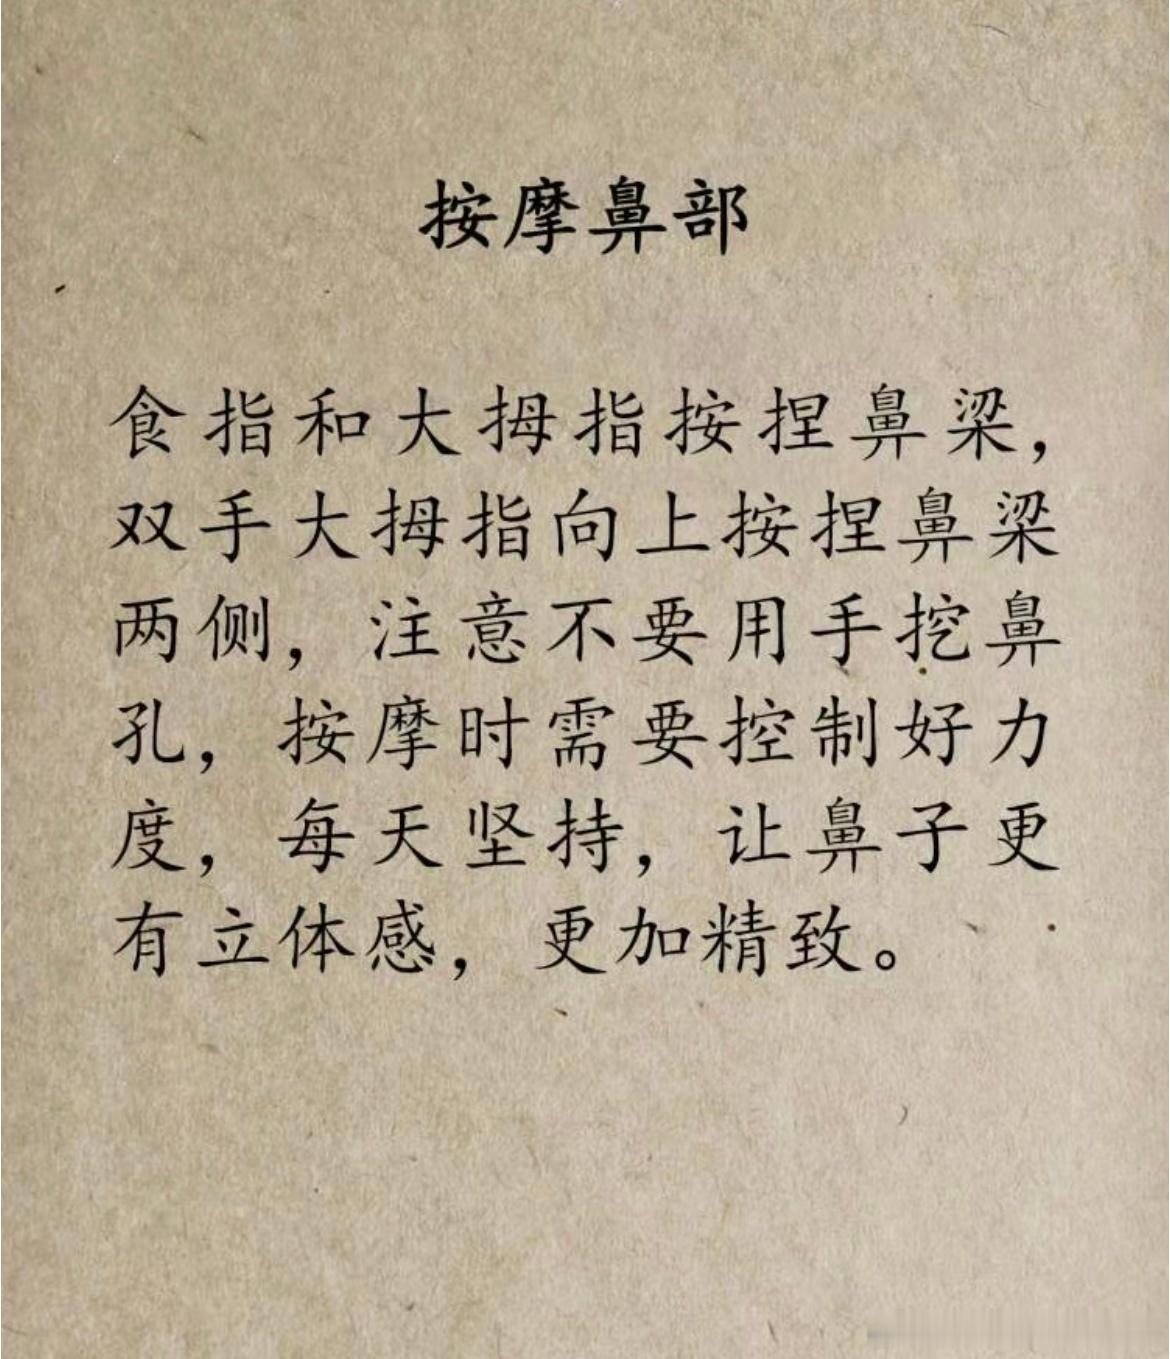 按摩鼻部
食指和大拇指按捏鼻梁，
双手大拇指向上按捏鼻梁
两侧，注意不要用手挖鼻
孔，按摩时需要控制好力
度，每天坚持，让鼻子更
有立体感，更加精致。